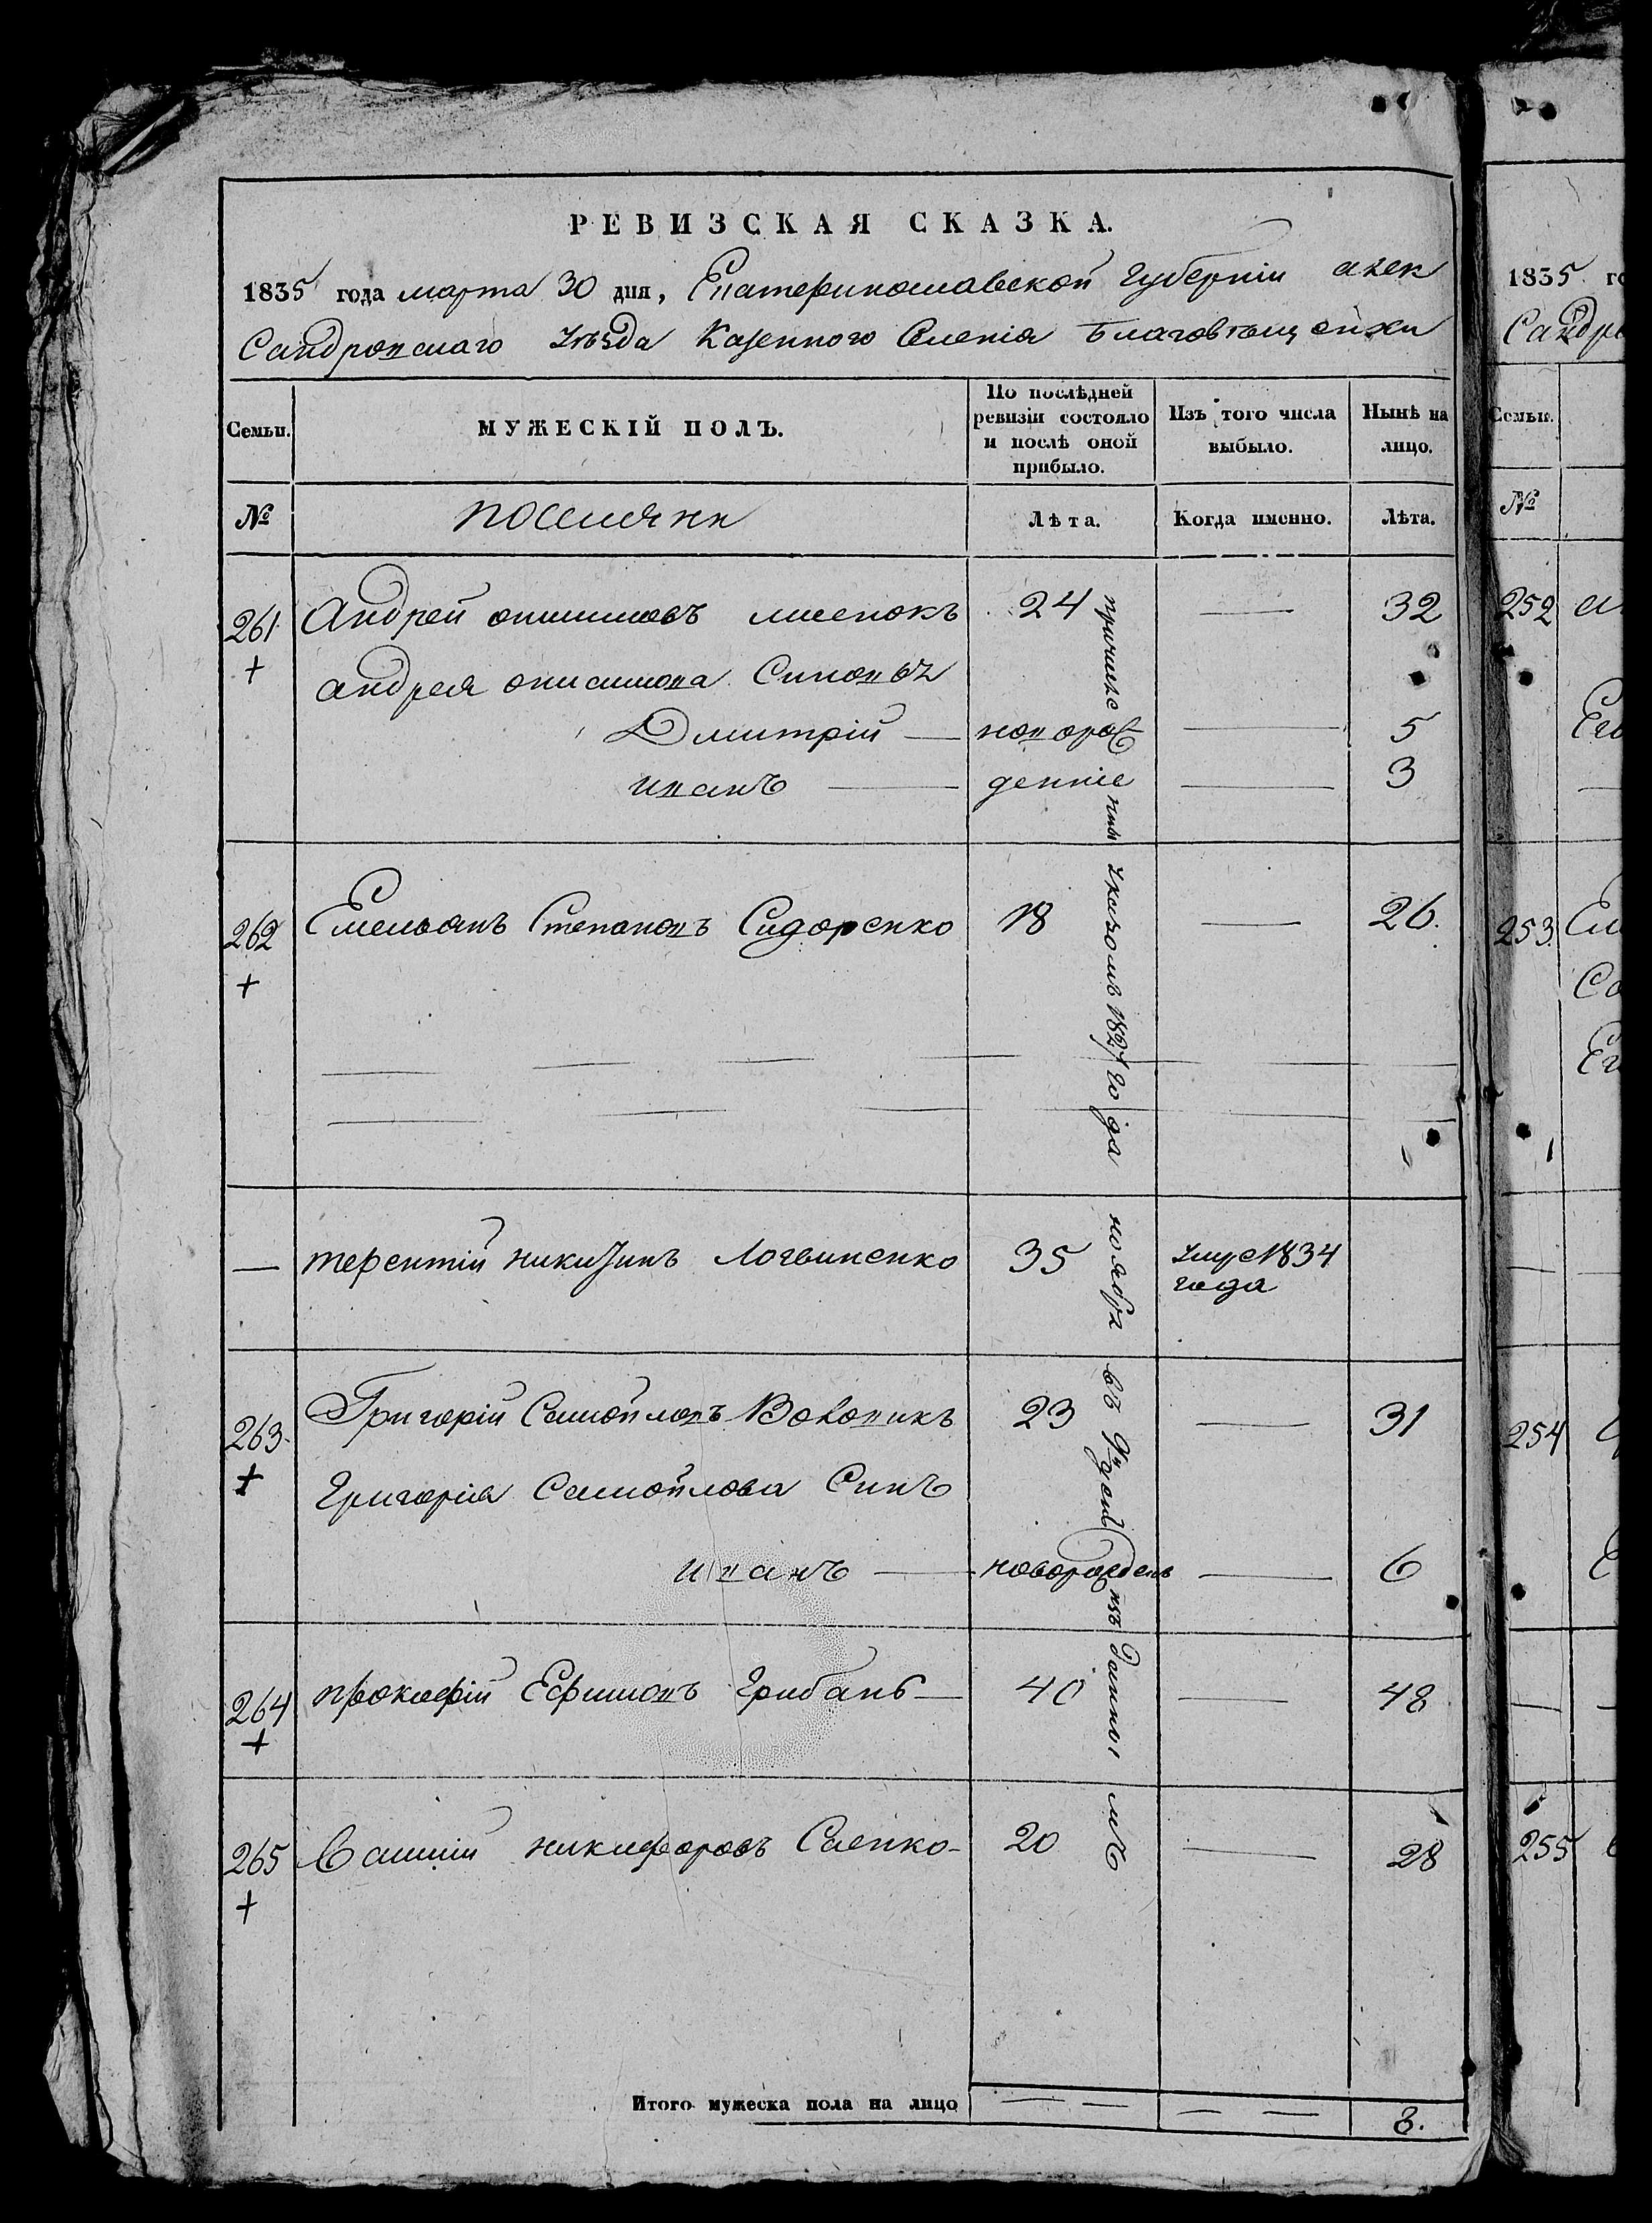 РЕВИЗСКАЯ СКАЗКА.
1835 года марта 30 дня, Екатеринославской губерніи алек
сандровскаго уѣзда Казенного Селенія благовѣщенхи
Семьи.
МУЖЕСКІЙ ПОЛЪ.
По послѣдней ревизіи состояло и послѣ оной прибыло.
Изъ того числа выбыло.
Нынѣ на лицо.
№ поселяне Лѣта. Когда именно. Лѣта.
261 Андрей онисимовъ лисенокъ 24 — 32
+ андрея онисимова Синовъ
Дмитрій — новорож — 5
иванъ — денніе — 3
262 Емельянъ Степановъ Сидоренко 18 — 26.
+
— терентій никитинъ Логвиненко 35 умре 1834
года
263. Григорій Самойловъ Вововикъ 23 — 31
+ григорія Самойлова Синъ
иванъ — новорожденъ — 6
264 прокофій Ефимовъ грибанъ — 40 — 48
+
265 Василій никифоровъ Саенко - 20 — 28
+
причислены указомъ 1827 года ноября въ 9й день
Итого мужеска пола на лицо — — — — 8.
1835 го
Сандро
Семьи.
№
252
Его
253.
254
255